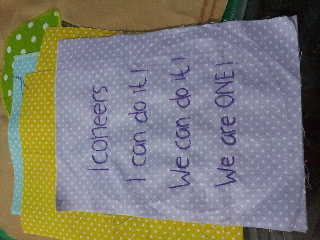 Iconeers
I can do it!
We can do it!
We are ONE!